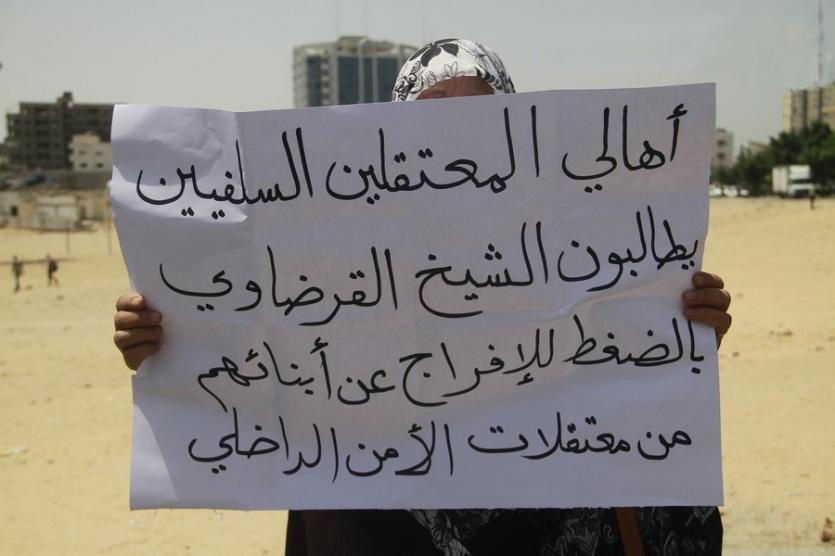 أهالي المعتقلين السلفيين
يطالبون الشيخ القرضاوي
بالضغط للإفراج عن أبنائهم
من معتقلات الأمن الداخلي